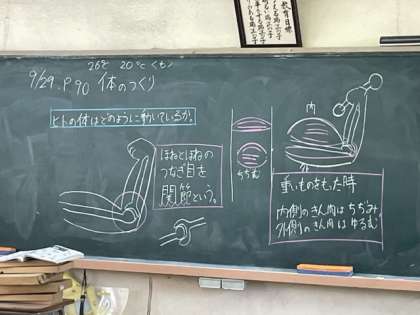 教育目標
26℃ 20℃ くもり
9/29. P.90 体のつくり
ヒトの体はどのように動いているか。
ほねとほねの
つなぎ目を
関節という。
ちぢむ
内
重いものをもった時
内側のきん肉はちぢみ、
外側のきん肉はゆるむ。